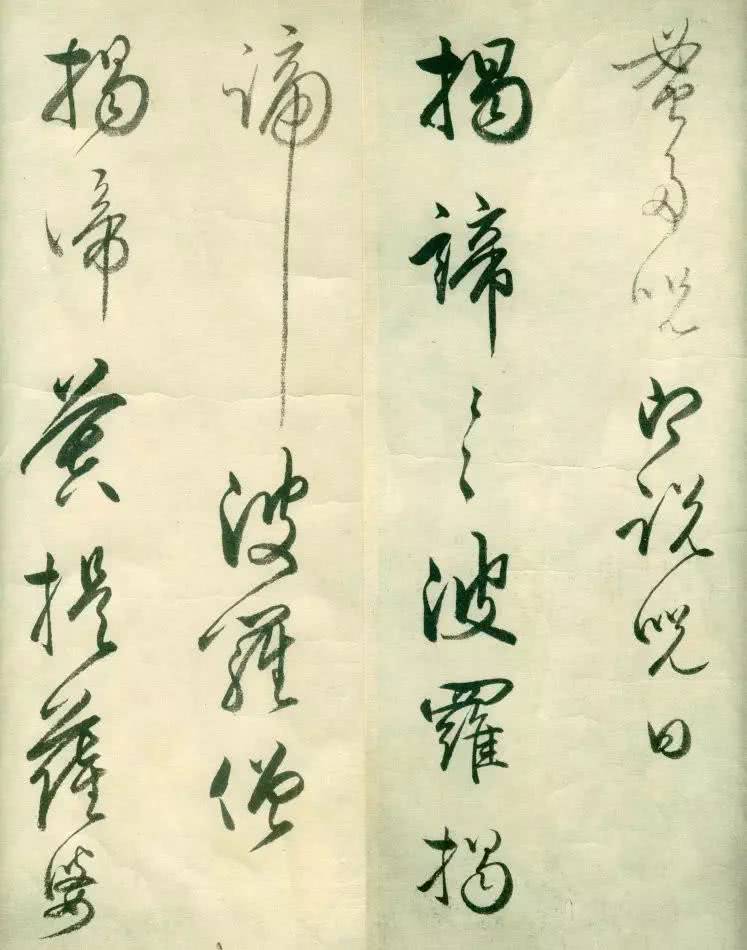 蜜多呪即說呪曰
揭諦々波羅揭
諦波羅僧
揭諦菩提薩婆